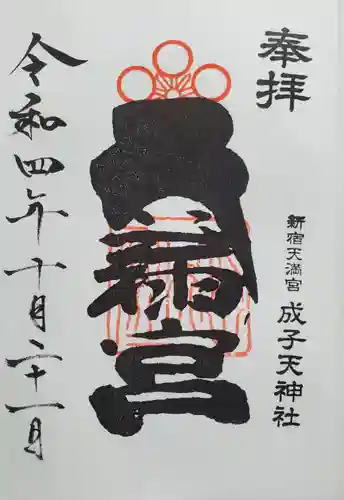 奉拝
新宿天満宮 成子天神社
天満宮
令和四年十月二十一日